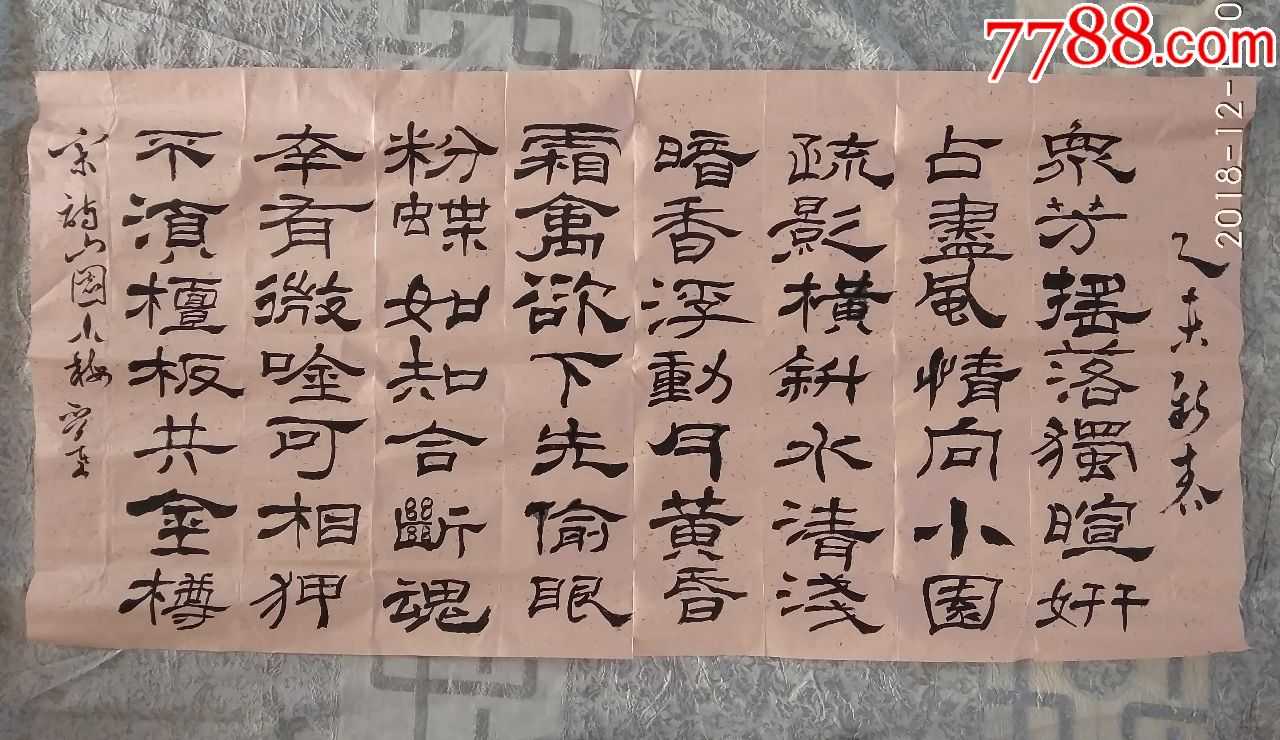 7788.com
2018-12-
乙未新春
眾芳搖落獨暄妍
占盡風情向小園
疏影橫斜水清淺
暗香浮動月黃昏
霜禽欲下先偷眼
粉蝶如知合斷魂
幸有微唫可相狎
不須檀板共金樽
宋詩山園小梅